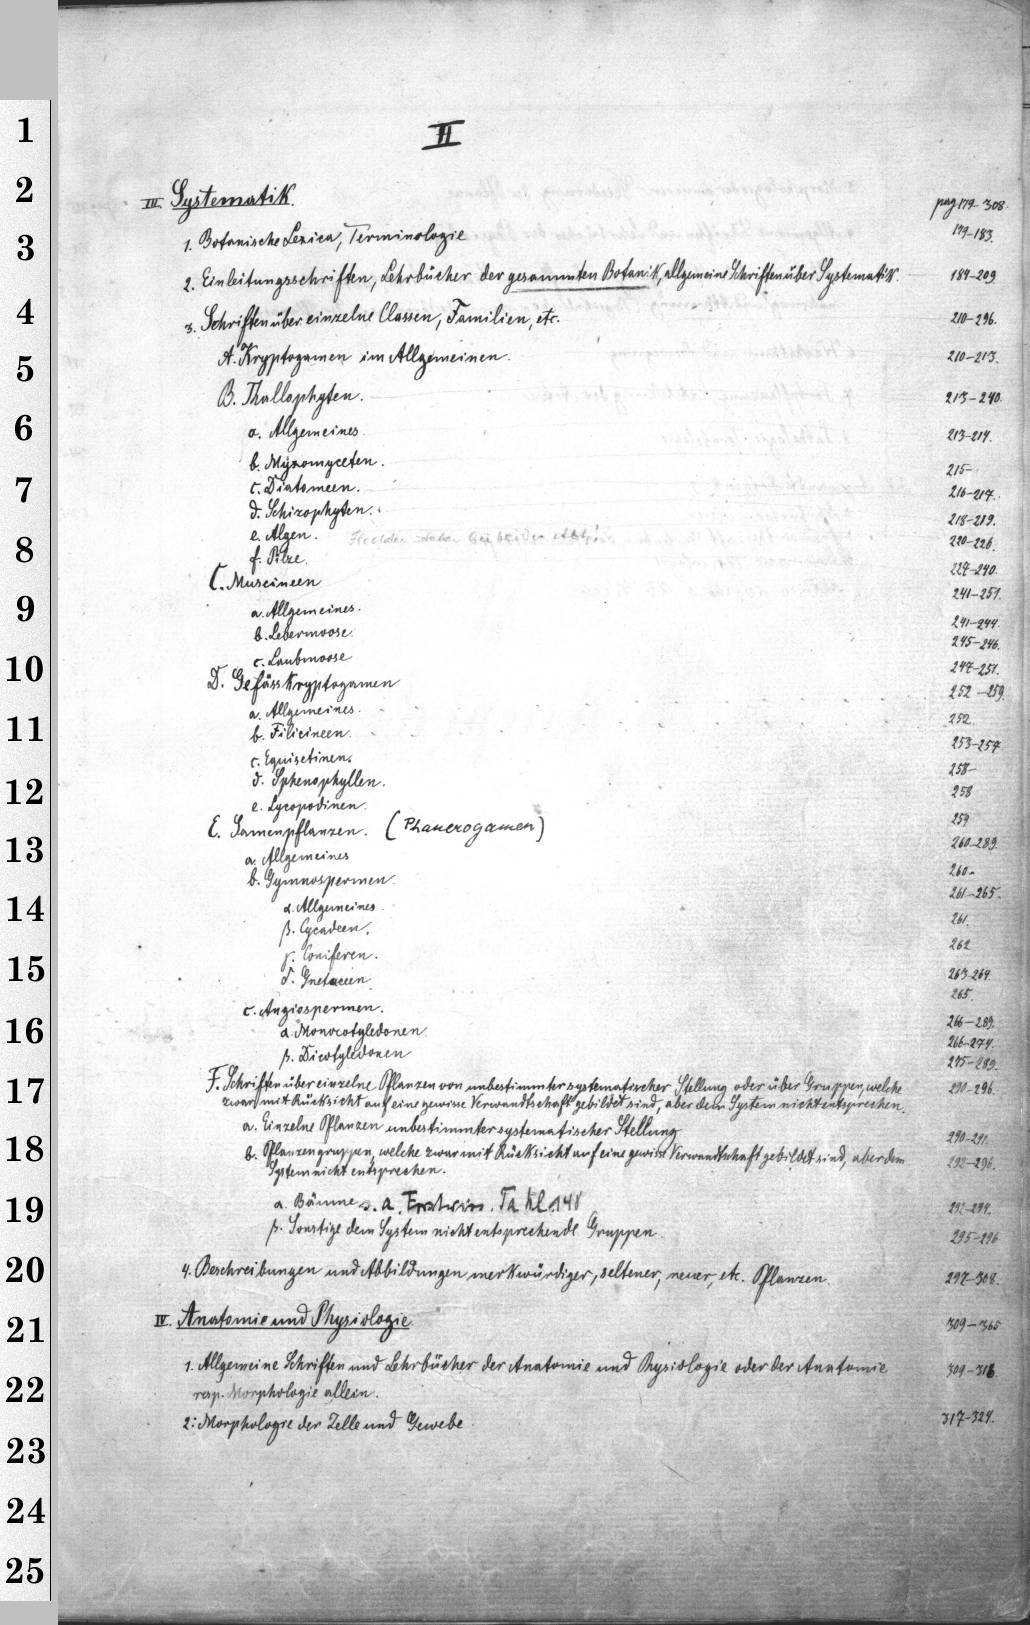 II
III. Systematik. pag 179-308.
1. Botanische Lexica, Terminologie 179-183.
2. Einleitungsschriften, Lehrbücher der gesammten Botanik, allgemeine Schriften über Systematik. 184-209
3. Schriften über einzelne Classen, Familien, etc. 210-296.
A. Kryptogamen im Allgemeinen. 210-213.
B. Thallophyten. 213-240.
a. Allgemeines. 213-214.
b. Myxomyceten. 215-
c. Diatomeen. 216-217.
d. Schizophyten. 218-219.
e. Algen. 220-226.
f. Pilze. 227-240.
C. Muscineen 241-251.
a. Allgemeines. 241-244.
b. Lebermoose. 245-246.
c. Laubmoose 247-251.
D. Gefässkryptogamen 252-259.
a. Allgemeines. 252.
b. Filicineen. 253-257
c. Equisetinen. 258-
d. Sphenophyllen. 258
e. Lycopodinen. 259
E. Samenpflanzen. (Phanerogamen) 260-289.
a. Allgemeines 260-
b. Gymnospermen. 261-265.
α. Allgemeines. 261.
β. Cycadeen. 262
γ. Coniferen. 263-264.
δ. Gnetaceen 265.
c. Angiospermen. 266-289.
α. Monocotyledonen. 266-274.
β. Dicotyledonen 275-289.
F. Schriften über einzelne Pflanzen von unbestimmter systematischer Stellung oder über Gruppen, welche 290-296.
zwar mit Rücksicht auf eine gewisse Verwandtschaft gebildet sind, aber dem System nicht entsprechen.
a. Einzelne Pflanzen unbestimmter systematischer Stellung 290-291.
b. Pflanzengruppen, welche zwar mit Rücksicht auf eine gewisse Verwandtschaft gebildet sind, aber dem 292-296.
System nicht entsprechen.
α. Bäume s. a. Forstwiss. Ta Kl. 148 292-294.
β. Sonstige dem System nicht entsprechende Gruppen. 295-296
4. Beschreibungen und Abbildungen merkwürdiger, seltener, neuer, etc. Pflanzen. 297-308.
IV. Anatomie und Physiologie. 309-365
1. Allgemeine Schriften und Lehrbücher der Anatomie und Physiologie oder der Anatomie 309-316.
resp. Morphologie allein.
2. Morphologie der Zelle und Gewebe. 317-324.